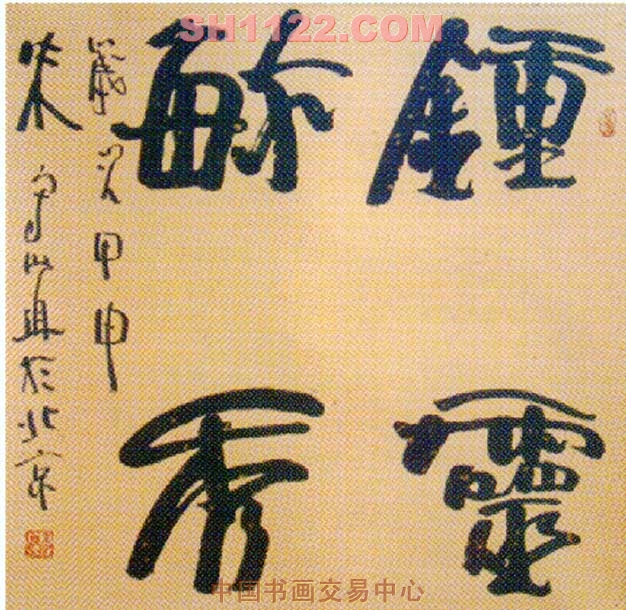 SH1122.COM
鍾靈
毓秀
歲次甲申
朱 於北京
中国书画交易中心